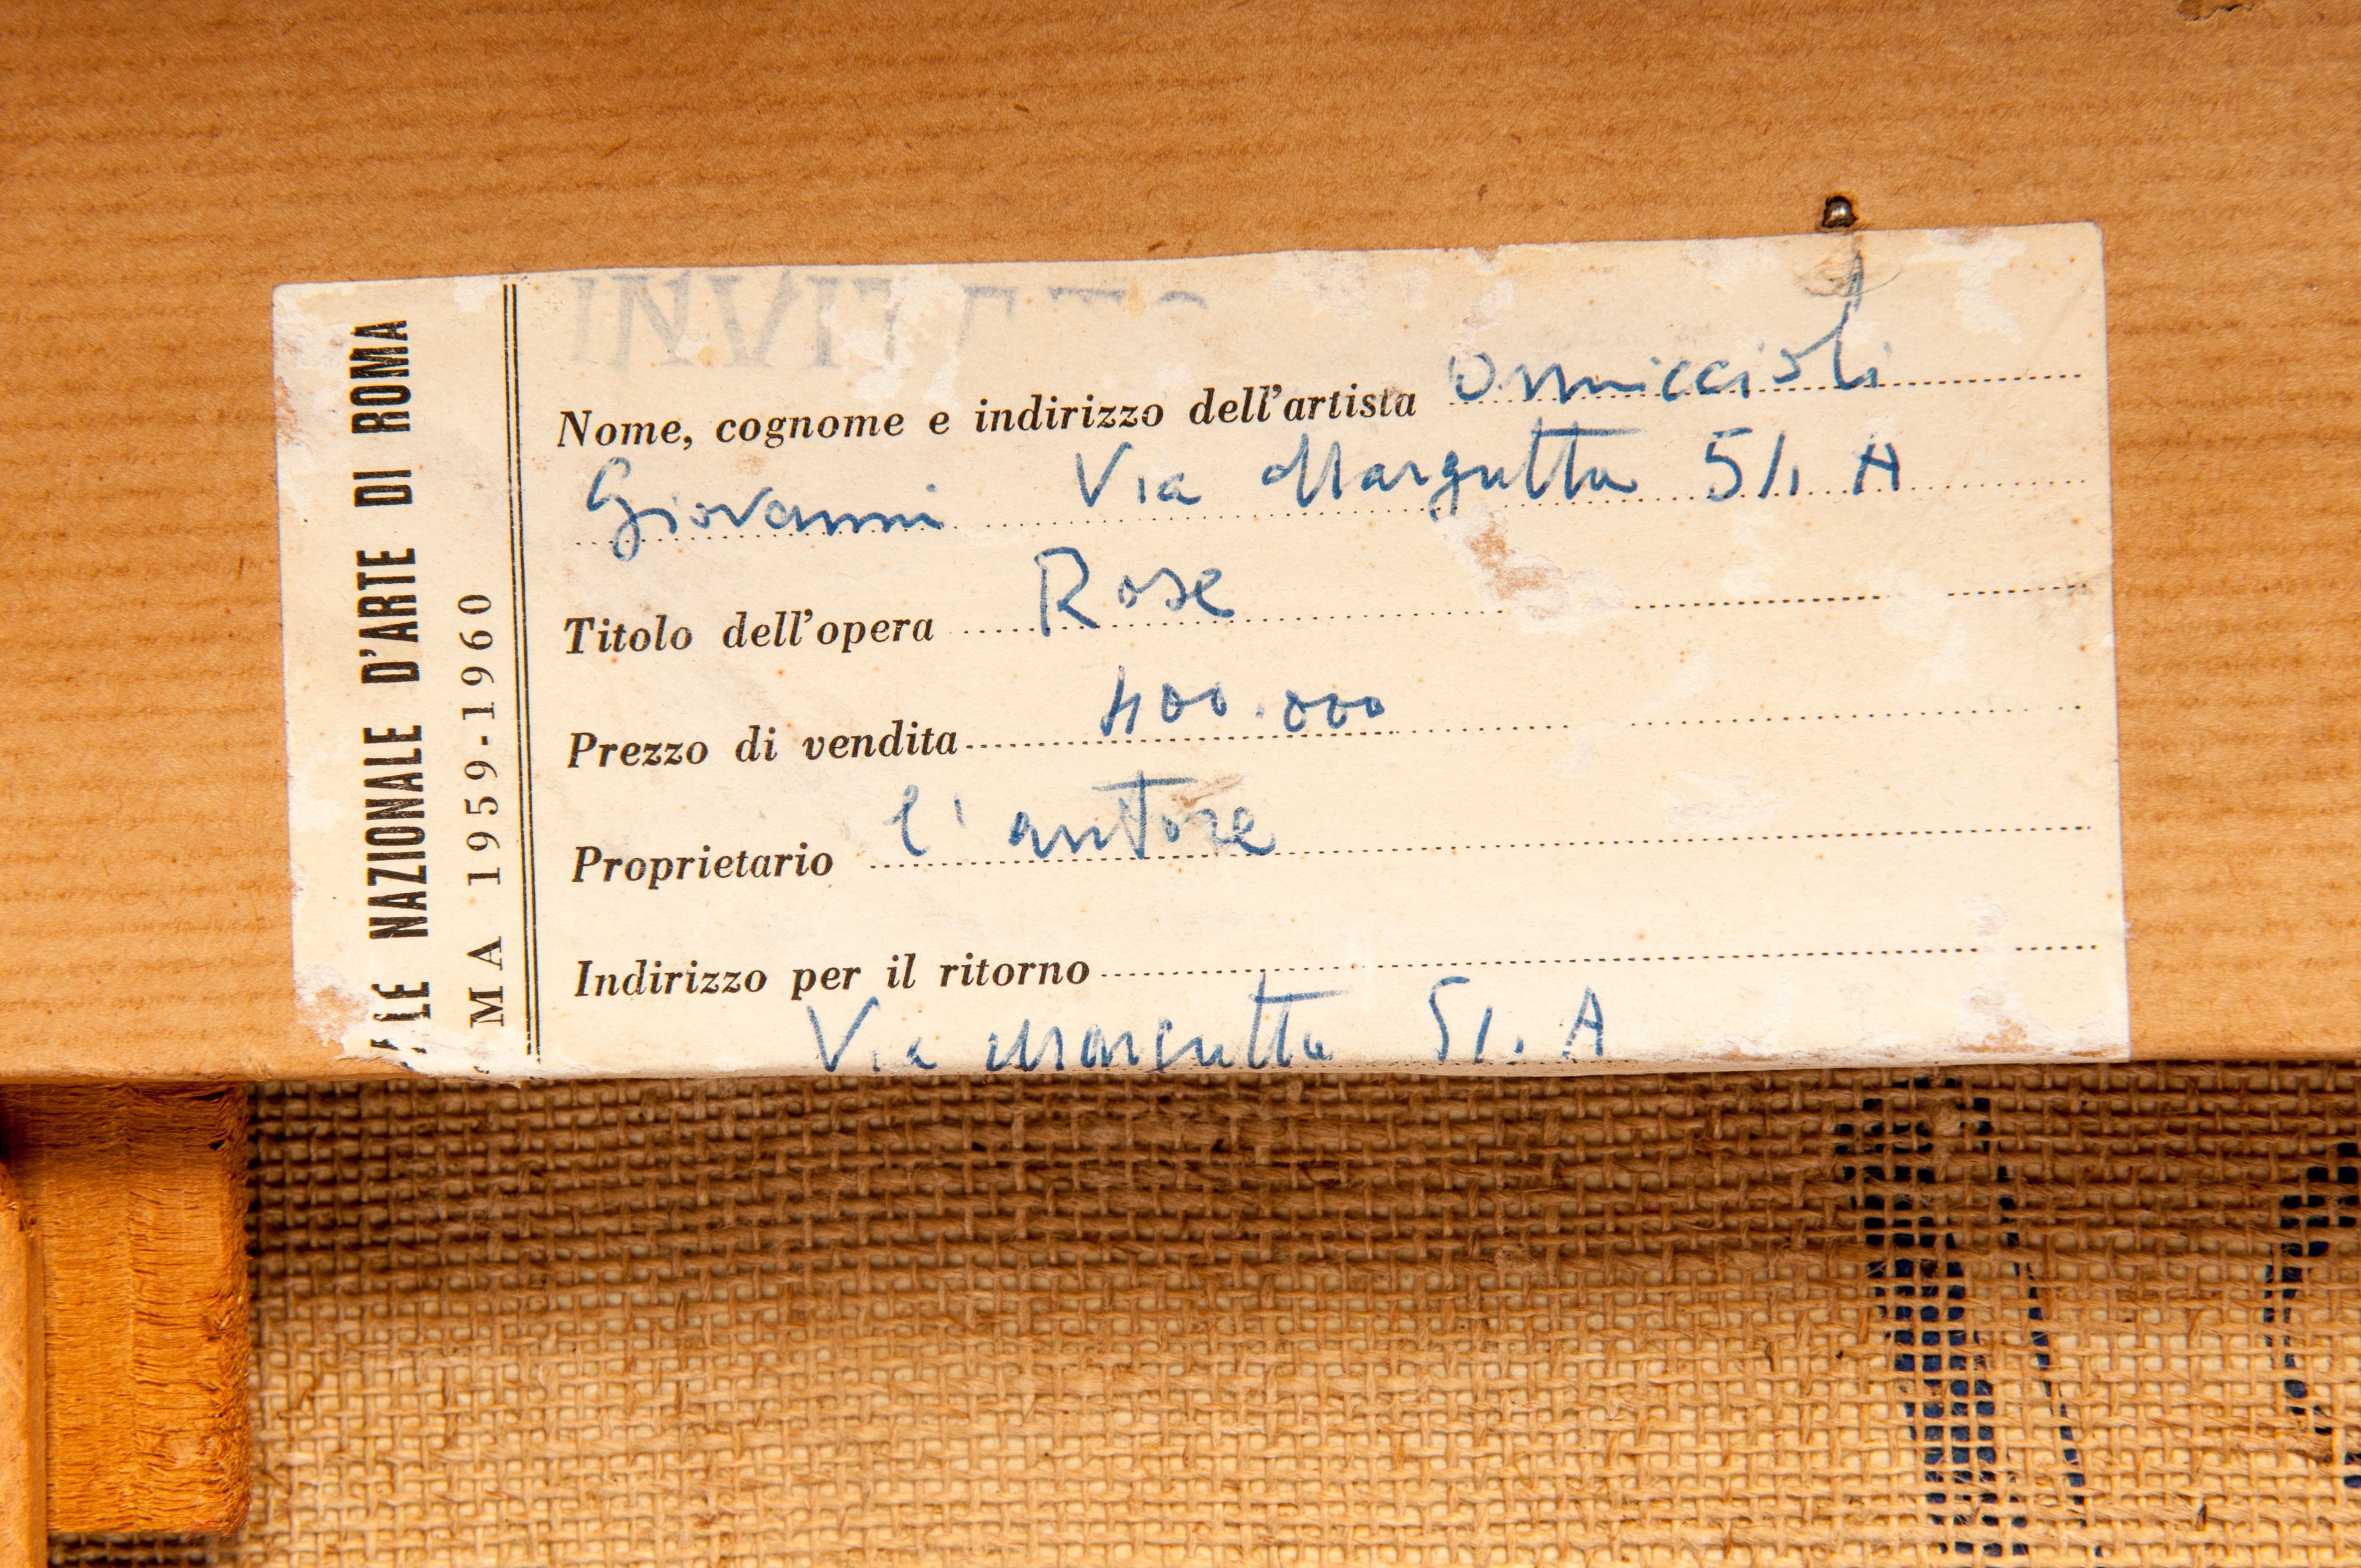 NAZIONALE D'ARTE DI ROMA
MA 1959-1960
Nome, cognome e indirizzo dell'artista Omiccioli
Giovanni Via Margutta 51 A
Titolo dell'opera Rose
Prezzo di vendita 400.000
Proprietario l'autore
Indirizzo per il ritorno
Via Margutta 51. A